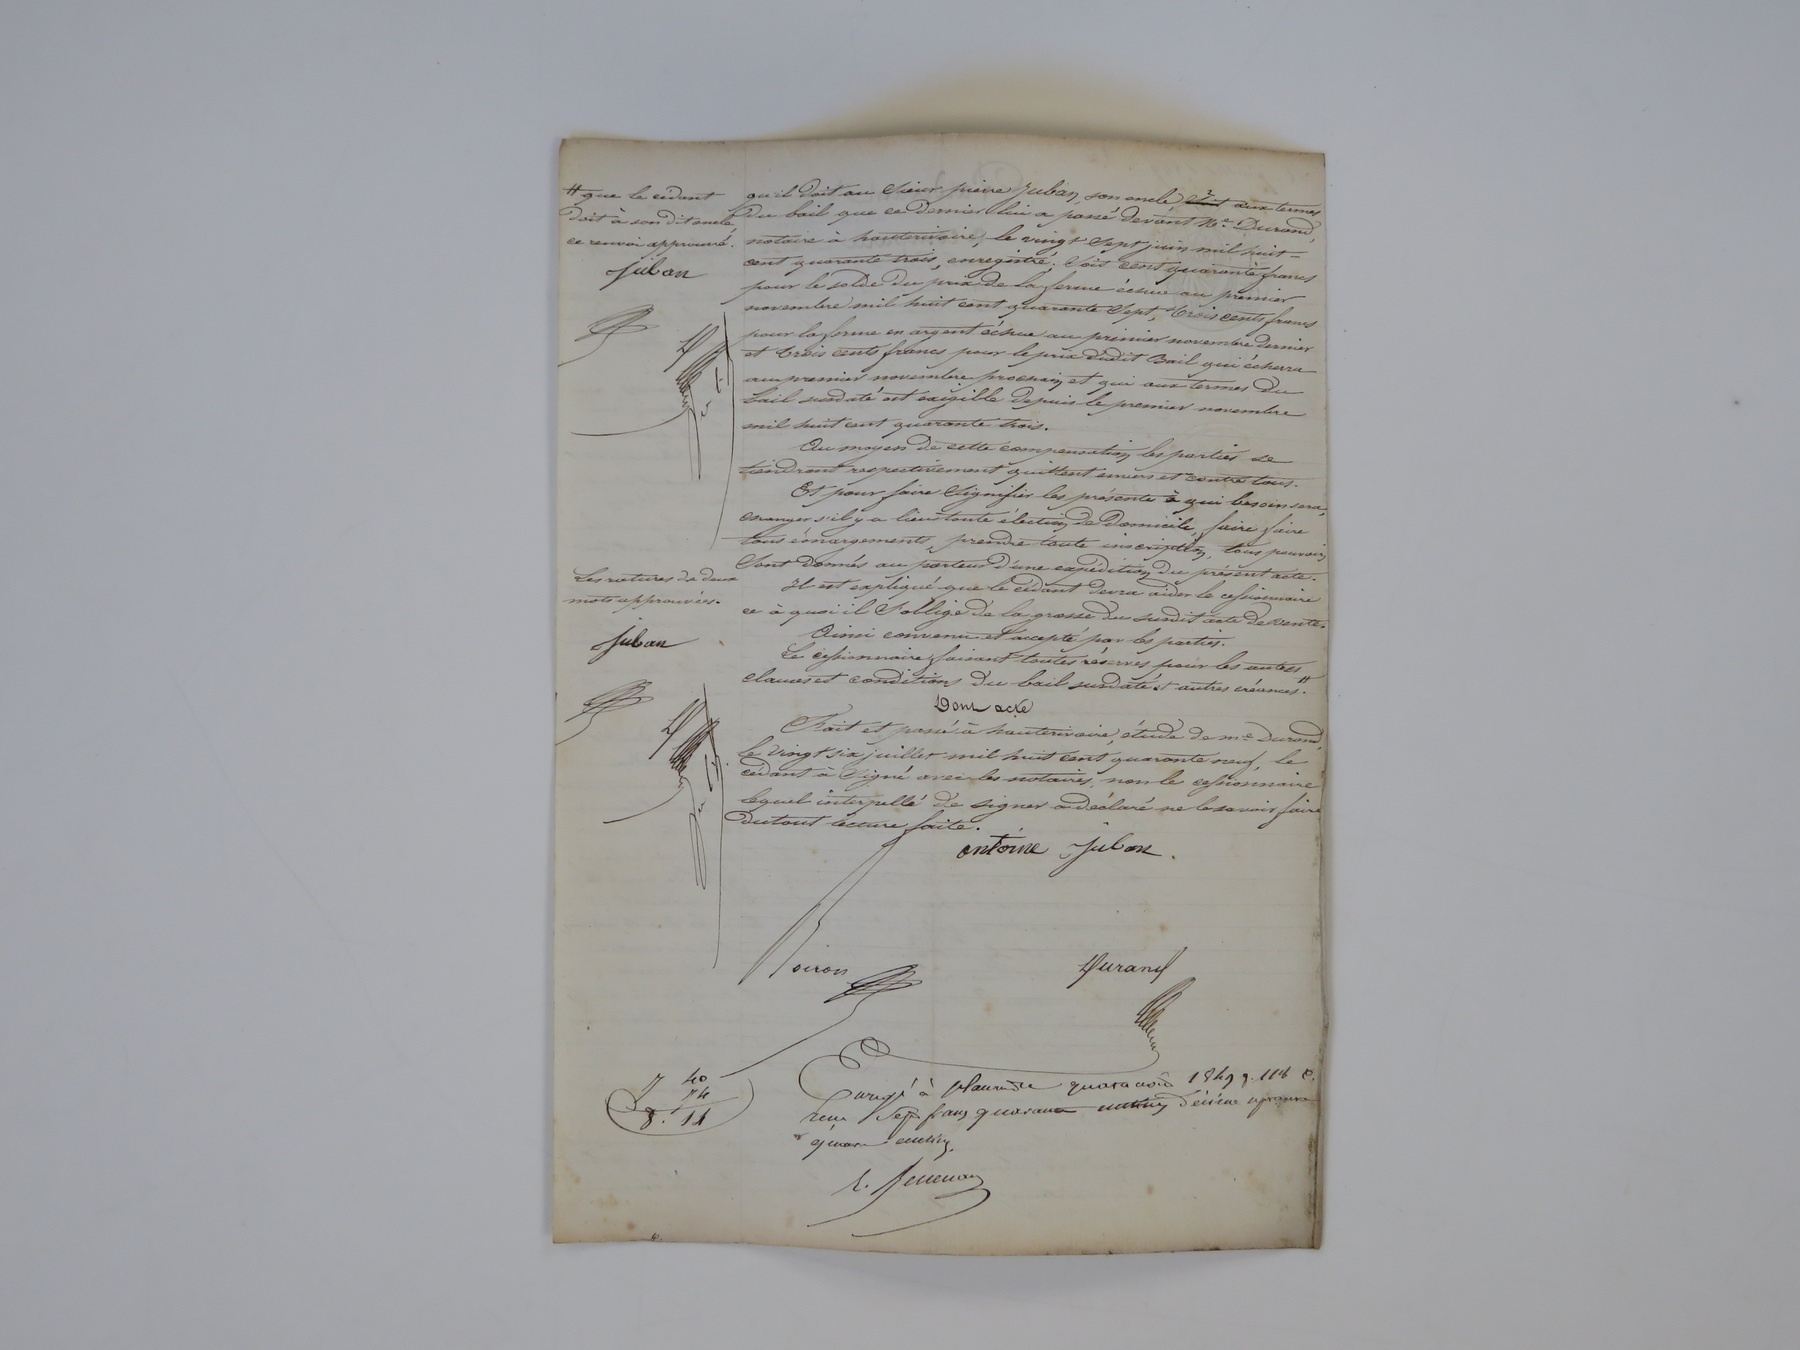 # que le cédant
doit à son dit oncle,
ce renvoi approuvé.
Juban
qu'il doit au sieur pierre Juban, son oncle, aux termes
du bail que ce dernier lui a passé devant Me. Durand,
notaire à hauterivoire, le vingt sept juin mil huit-
cent quarante trois, enregistré; Soit cent quarante francs
pour le solde du prix de la ferme échue au premier
novembre mil huit cent quarante sept, trois cents francs
pour la ferme en argent échue au premier novembre dernier
et trois cents francs pour le prix dudit Bail qui écherra
au premier novembre prochain et qui aux termes du
bail susdaté est exigible depuis le premier novembre
mil huit cent quarante trois.
Au moyen de cette compensation les parties se
tiendront respectivement quittent envers et contre tous.
Et pour faire signifier les présente à qui besoin sera,
changer s'il y a lieu toute élection de Domicile, faire faire
tous émargements, prendre toute inscription, tous pouvoirs
Sont donnés au porteur d'une expédition du présent acte.
Il est expliqué que le cédant devra aider le cessionnaire
ce à quoi il s'oblige de la grosse du susdit acte de vente.
Ainsi convenu et accepté par les parties.
Le cessionnaire faisant toutes réserves pour les autres
clauses et conditions du bail susdaté et autres créances. #
Les ratures de deux
mots approuvées.
Juban
Dont acte
Fait et passé à hauterivoire, étude de me. Durand,
le vingt six juillet mil huit cent quarante neuf, le
cédant à signé avec les notaires, non le cessionnaire
lequel interpellé de signer a déclaré ne le savoir faire
du tout lecture faite.
antoine Juban
Durand
7 40
74
8. 14
à quatre août 1849 118
reçu Sept francs quarante décime